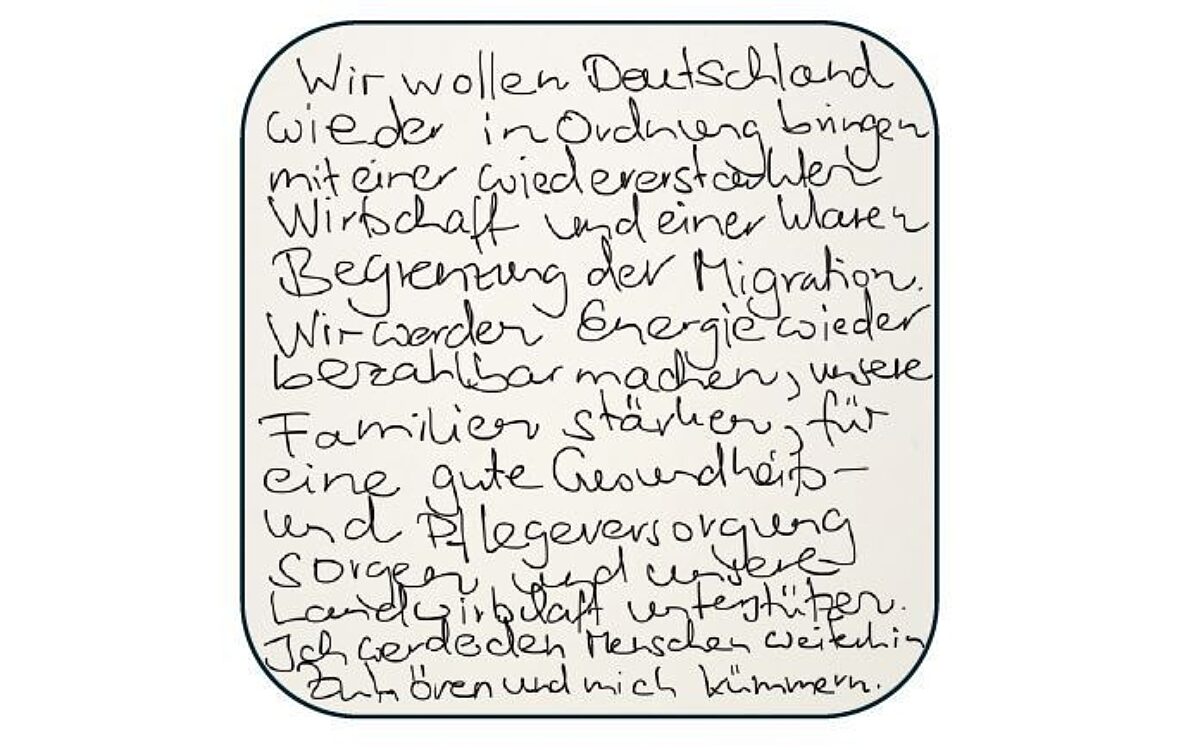 Wir wollen Deutschland
wieder in Ordnung bringen
mit einer wiedererstarkten
Wirtschaft und einer klaren
Begrenzung der Migration.
Wir werden Energie wieder
bezahlbar machen, unsere
Familien stärken, für
eine gute Gesundheits-
und Pflegeversorgung
sorgen und unsere
Landwirtschaft unterstützen.
Ich werde den Menschen weiterhin
zuhören und mich kümmern.